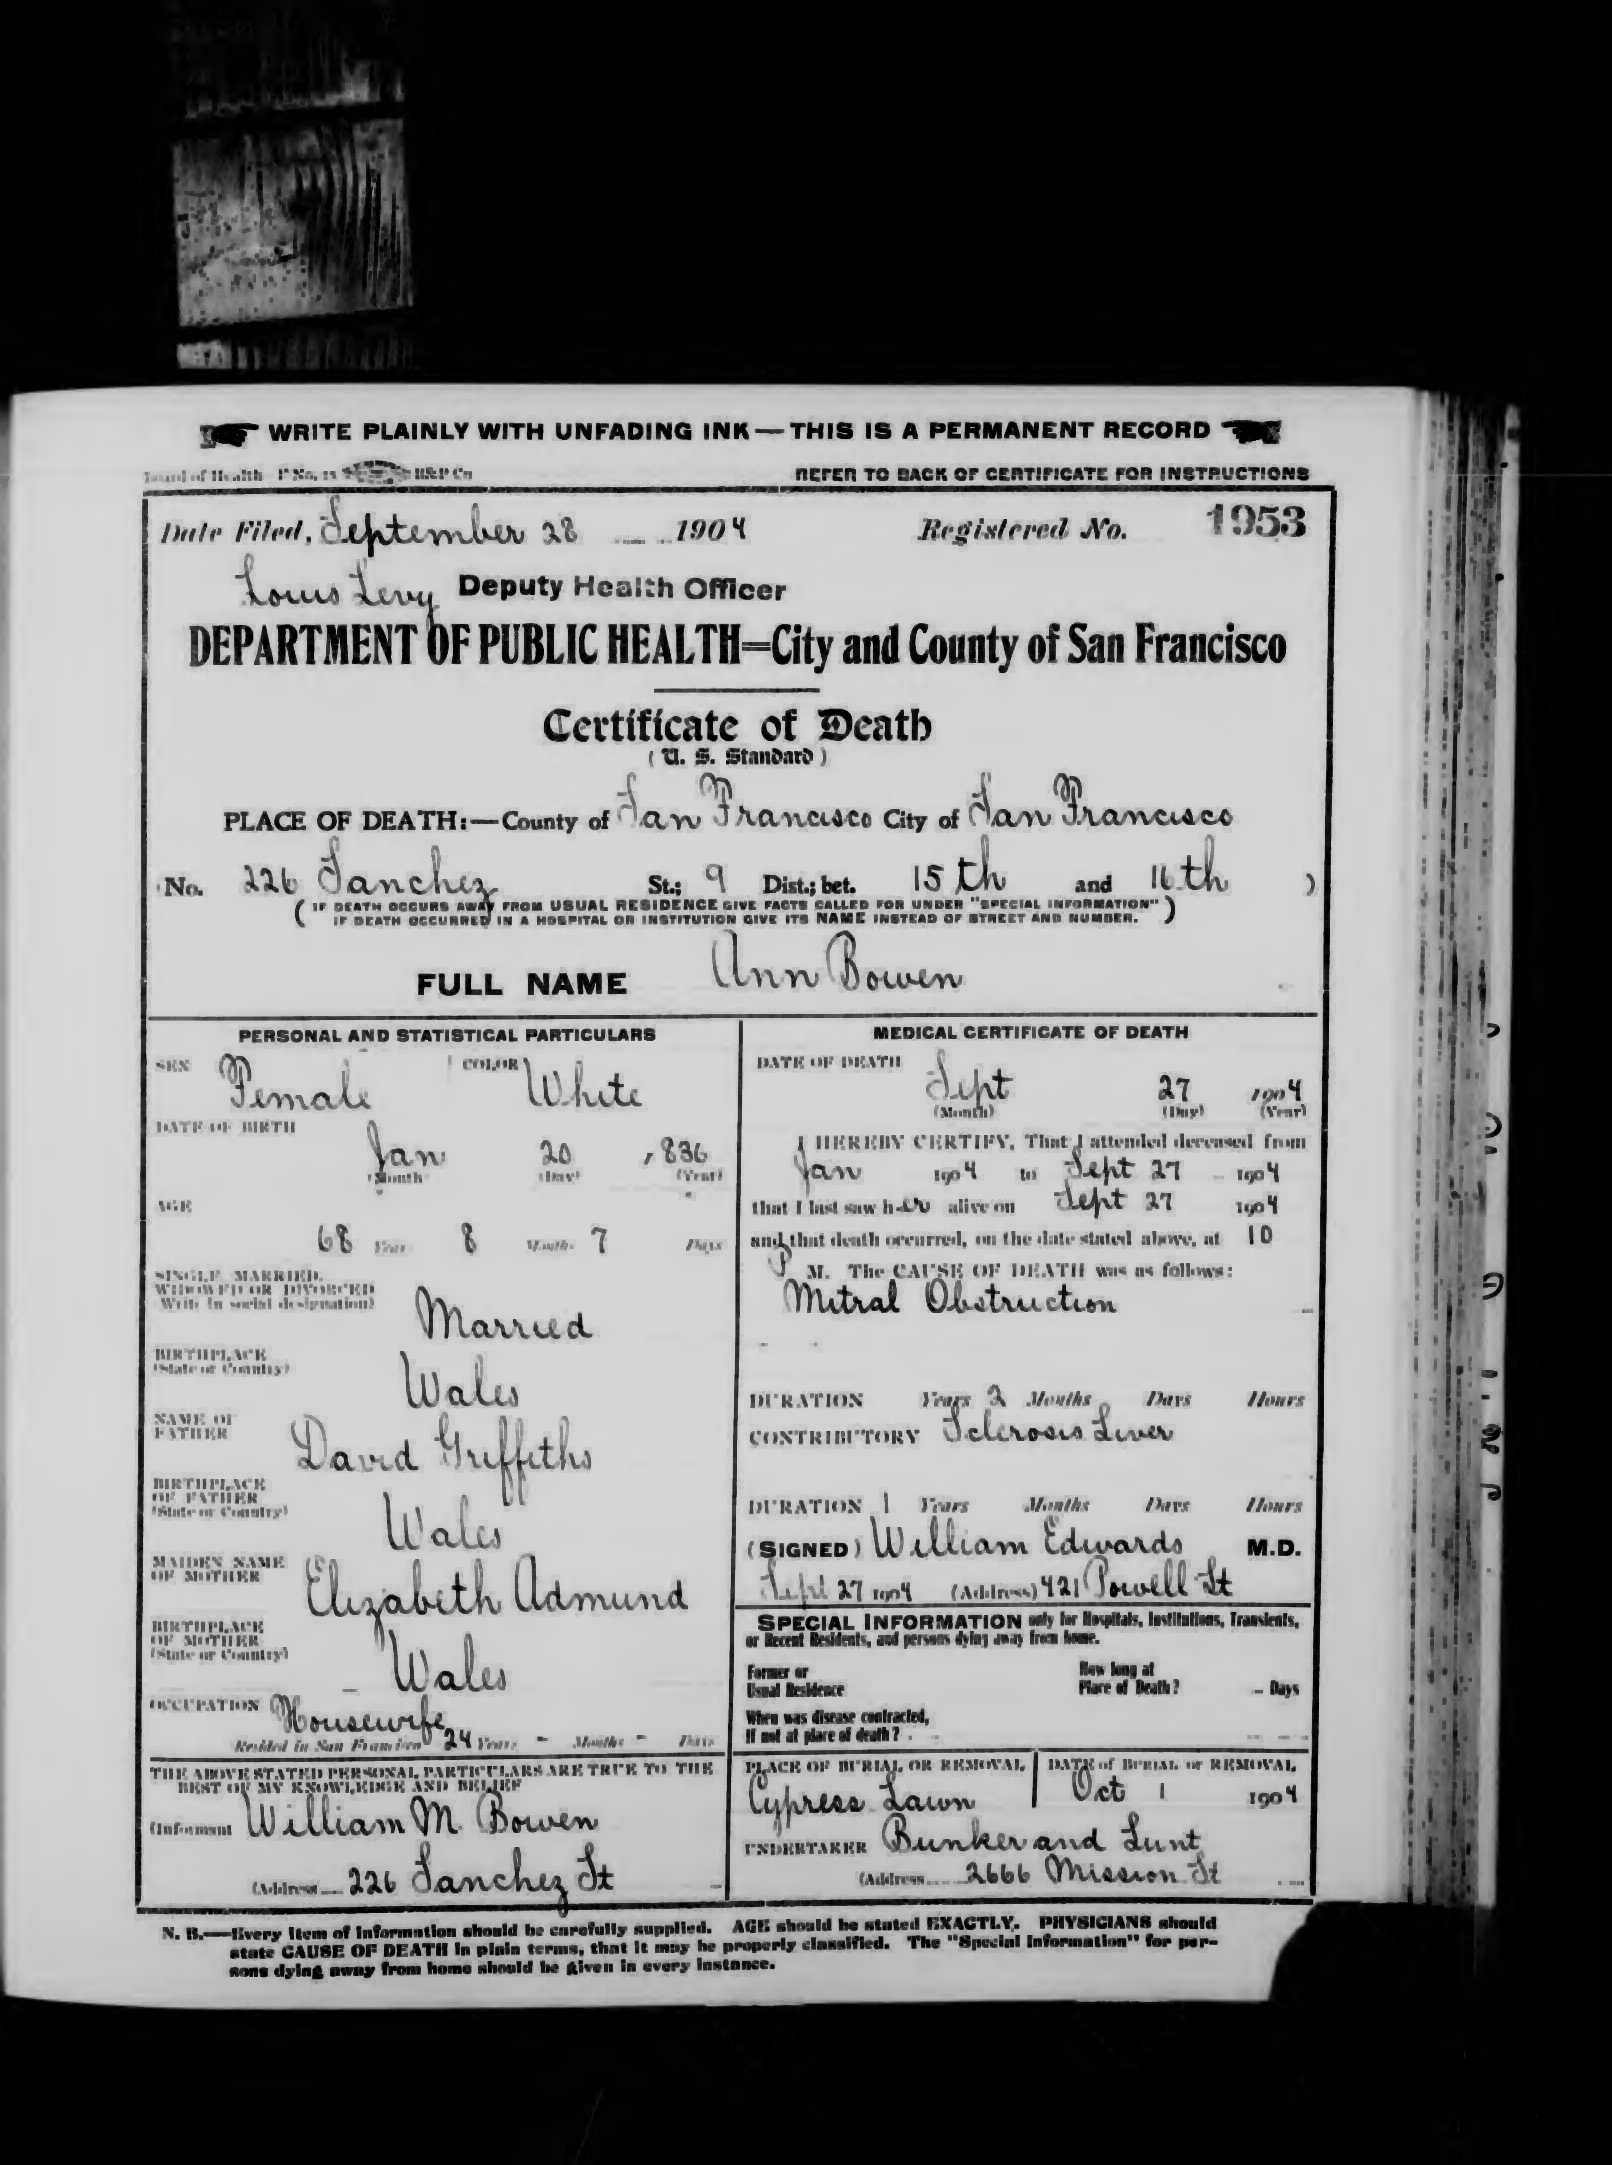 WRITE PLAINLY WITH UNFADING INK—THIS IS A PERMANENT RECORD
Board of Health—F No. 18 H&P Co
REFER TO BACK OF CERTIFICATE FOR INSTRUCTIONS
Date Filed, September 28 1904 Registered No. 1953
Louis Levy Deputy Health Officer
DEPARTMENT OF PUBLIC HEALTH=City and County of San Francisco
Certificate of Death
( U. S. Standard )
PLACE OF DEATH:—County of San Francisco City of San Francisco
(No. 226 Sanchez St.; 9 Dist.; bet. 15th and 16th )
( IF DEATH OCCURS AWAY FROM USUAL RESIDENCE GIVE FACTS CALLED FOR UNDER "SPECIAL INFORMATION"
IF DEATH OCCURRED IN A HOSPITAL OR INSTITUTION GIVE ITS NAME INSTEAD OF STREET AND NUMBER. )
FULL NAME Ann Bowen
PERSONAL AND STATISTICAL PARTICULARS
SEX Female COLOR White
DATE OF BIRTH
Jan 20 1836
(Month) (Day) (Year)
AGE
68 Years 8 Months 7 Days
SINGLE, MARRIED,
WIDOWED OR DIVORCED
(Write in social designation)
Married
BIRTHPLACE
(State or Country)
Wales
NAME OF
FATHER
David Griffiths
BIRTHPLACE
OF FATHER
(State or Country)
Wales
MAIDEN NAME
OF MOTHER
Elizabeth Admund
BIRTHPLACE
OF MOTHER
(State or Country)
Wales
OCCUPATION Housewife
Resided in San Francisco 24 Years - Months - Days
THE ABOVE STATED PERSONAL PARTICULARS ARE TRUE TO THE
BEST OF MY KNOWLEDGE AND BELIEF
(Informant William M. Bowen
(Address 226 Sanchez St
MEDICAL CERTIFICATE OF DEATH
DATE OF DEATH
Sept 27 1904
(Month) (Day) (Year)
I HEREBY CERTIFY, That I attended deceased from
Jan 1904 to Sept 27 1904
that I last saw h-er alive on Sept 27 1904
and that death occurred, on the date stated above, at 10
P M. The CAUSE OF DEATH was as follows:
Mitral Obstruction
DURATION Years 2 Months Days Hours
CONTRIBUTORY Sclerosis Liver
DURATION 1 Years Months Days Hours
(SIGNED) William Edwards M.D.
Sept 27 1904 (Address) 421 Powell St
SPECIAL INFORMATION only for Hospitals, Institutions, Transients,
or Recent Residents, and persons dying away from home.
Former or
Usual Residence
How long at
Place of Death? Days
When was disease contracted,
If not at place of death?
PLACE OF BURIAL OR REMOVAL
Cypress Lawn
DATE of BURIAL or REMOVAL
Oct 1 1904
UNDERTAKER Bunker and Lunt
(Address 2666 Mission St
N. B.—Every item of information should be carefully supplied. AGE should be stated EXACTLY. PHYSICIANS should
state CAUSE OF DEATH in plain terms, that it may be properly classified. The "Special Information" for per-
sons dying away from home should be given in every instance.